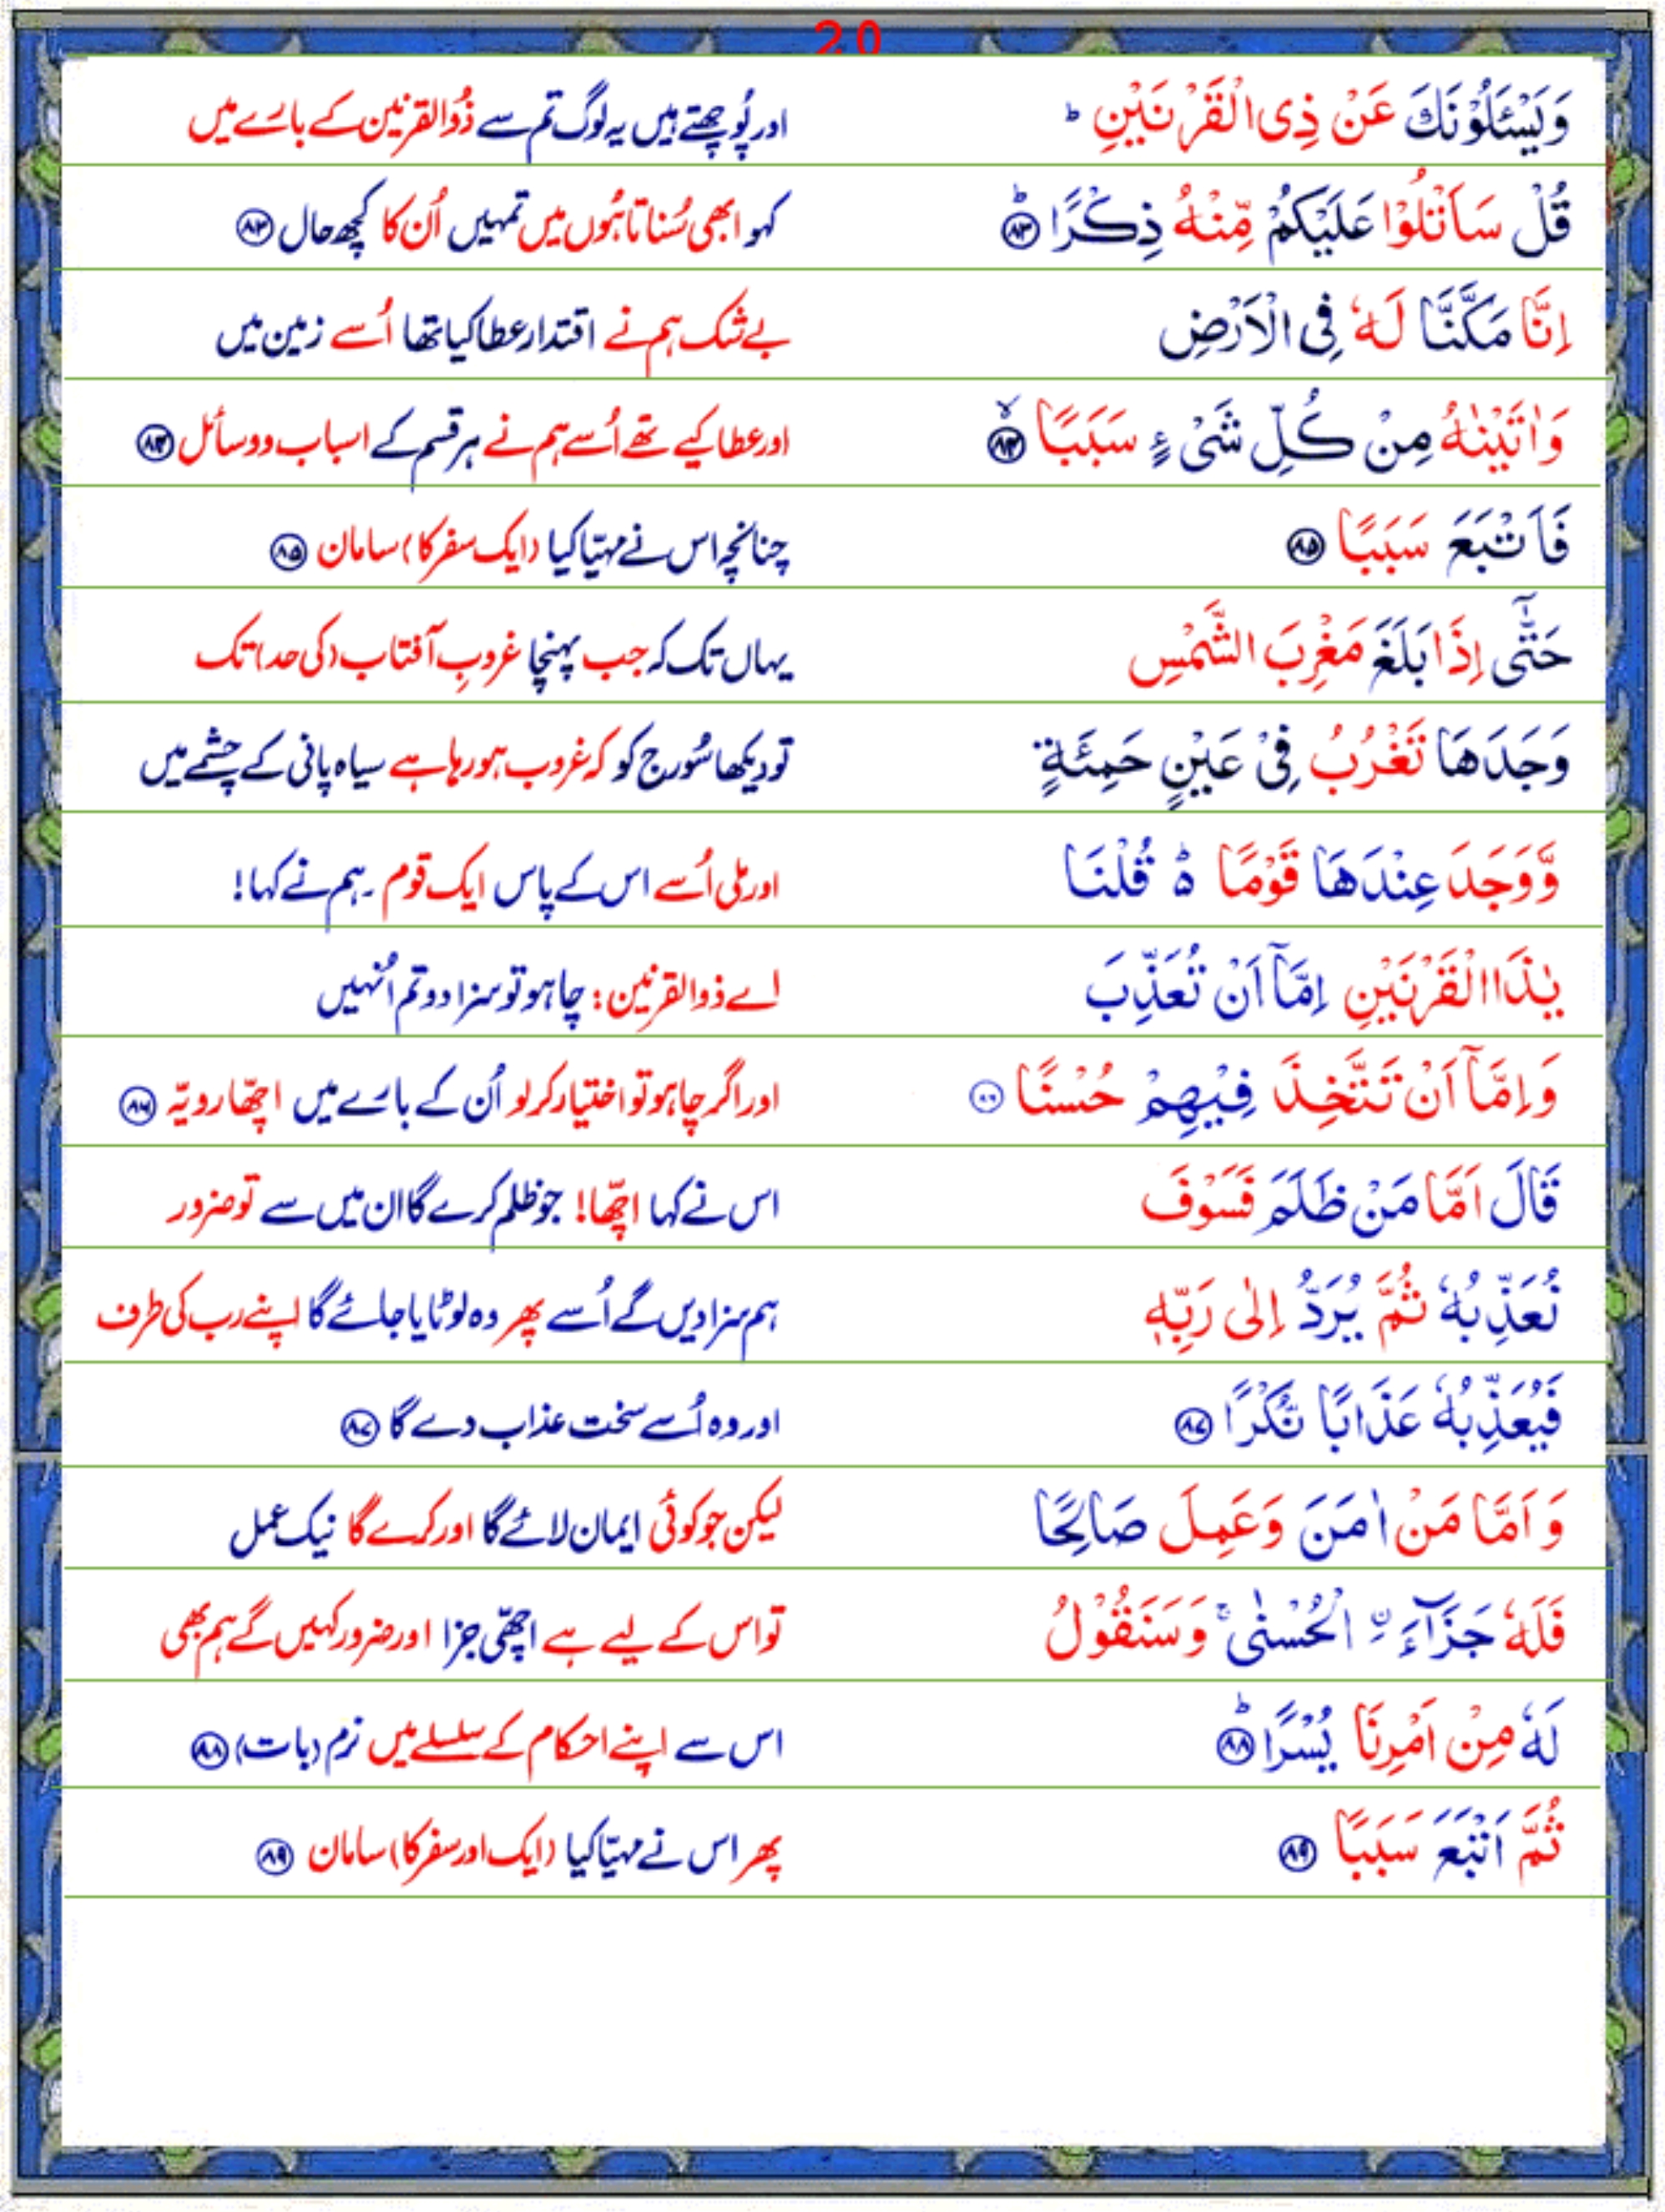 20
وَيَسْـَٔلُوْنَكَ عَنْ ذِى الْقَرْنَيْنِ ؕ اور پُوچھتے ہیں یہ لوگ تم سے ذُوالقرنین کے بارے میں
قُلْ سَاَتْلُوْا عَلَيْكُمْ مِّنْهُ ذِكْرًا ؕ ۸۳ کہو ابھی سُناتا ہُوں میں تمہیں اُن کا کچھ حال ۸۳
اِنَّا مَكَّنَّا لَهٗ فِى الْاَرْضِ بے شک ہم نے اقتدار عطا کیا تھا اُسے زمین میں
وَاٰتَيْنٰهُ مِنْ كُلِّ شَىْءٍ سَبَبًا ۙ ۸۴ اور عطا کیے تھے اُسے ہم نے ہر قسم کے اسباب و وسائل ۸۴
فَاَتْبَعَ سَبَبًا ۸۵ چنانچہ اس نے مہیّا کیا (ایک سفر کا) سامان ۸۵
حَتّٰٓى اِذَا بَلَغَ مَغْرِبَ الشَّمْسِ یہاں تک کہ جب پہنچا غروبِ آفتاب (کی حد) تک
وَجَدَهَا تَغْرُبُ فِىْ عَيْنٍ حَمِئَةٍ تو دیکھا سُورج کو کہ غروب ہو رہا ہے سیاہ پانی کے چشمے میں
وَّوَجَدَ عِنْدَهَا قَوْمًا ۵ؕ قُلْنَا اور ملی اُسے اس کے پاس ایک قوم ۔ ہم نے کہا!
يٰذَا الْقَرْنَيْنِ اِمَّآ اَنْ تُعَذِّبَ اے ذوالقرنین: چاہو تو سزا دو تم اُنہیں
وَاِمَّآ اَنْ تَتَّخِذَ فِيْهِمْ حُسْنًا ۸۶ اور اگر چاہو تو اختیار کر لو اُن کے بارے میں اچھّا رویّہ ۸۶
قَالَ اَمَّا مَنْ ظَلَمَ فَسَوْفَ اس نے کہا اچھّا! جو ظلم کرے گا ان میں سے تو ضرور
نُعَذِّبُهٗ ثُمَّ يُرَدُّ اِلٰى رَبِّهٖ ہم سزا دیں گے اُسے پھر وہ لوٹایا جائے گا اپنے رب کی طرف
فَيُعَذِّبُهٗ عَذَابًا نُّكْرًا ۸۷ اور وہ اُسے سخت عذاب دے گا ۸۷
وَاَمَّا مَنْ اٰمَنَ وَعَمِلَ صَالِحًا لیکن جو کوئی ایمان لائے گا اور کرے گا نیک عمل
فَلَهٗ جَزَآءَ ۨ الْحُسْنٰى ۚ وَسَنَقُوْلُ تو اس کے لیے ہے اچھّی جزا اور ضرور کہیں گے ہم بھی
لَهٗ مِنْ اَمْرِنَا يُسْرًا ؕ ۸۸ اس سے اپنے احکام کے سلسلے میں نرم (بات) ۸۸
ثُمَّ اَتْبَعَ سَبَبًا ۸۹ پھر اس نے مہیّا کیا (ایک اور سفر کا) سامان ۸۹